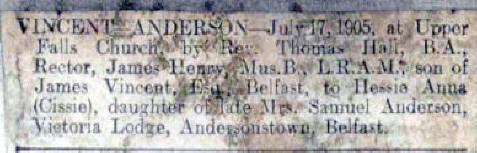 VINCENT—ANDERSON—July 17, 1905, at Upper
Falls Church, by Rev. Thomas Hall, B.A.,
Rector, James Henry, Mus.B., L.R.A.M., son of
James Vincent, Esq., Belfast, to Hessie Anna
(Cissie), daughter of late Mrs. Samuel Anderson,
Victoria Lodge, Andersonstown, Belfast.